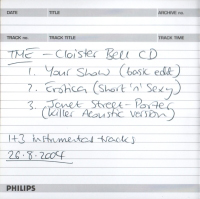 DATE TITLE ARCHIVE no.
TRACK no. TRACK TITLE TRACK TIME
TME - Cloister Bell CD
1. Your Show (bosk edit)
2. Erotica (Short 'n' Sexy)
3. Janet Street-Porter
(Killer Acoustic Version)
1+3 instrumental tracks
26.8.2004
PHILIPS